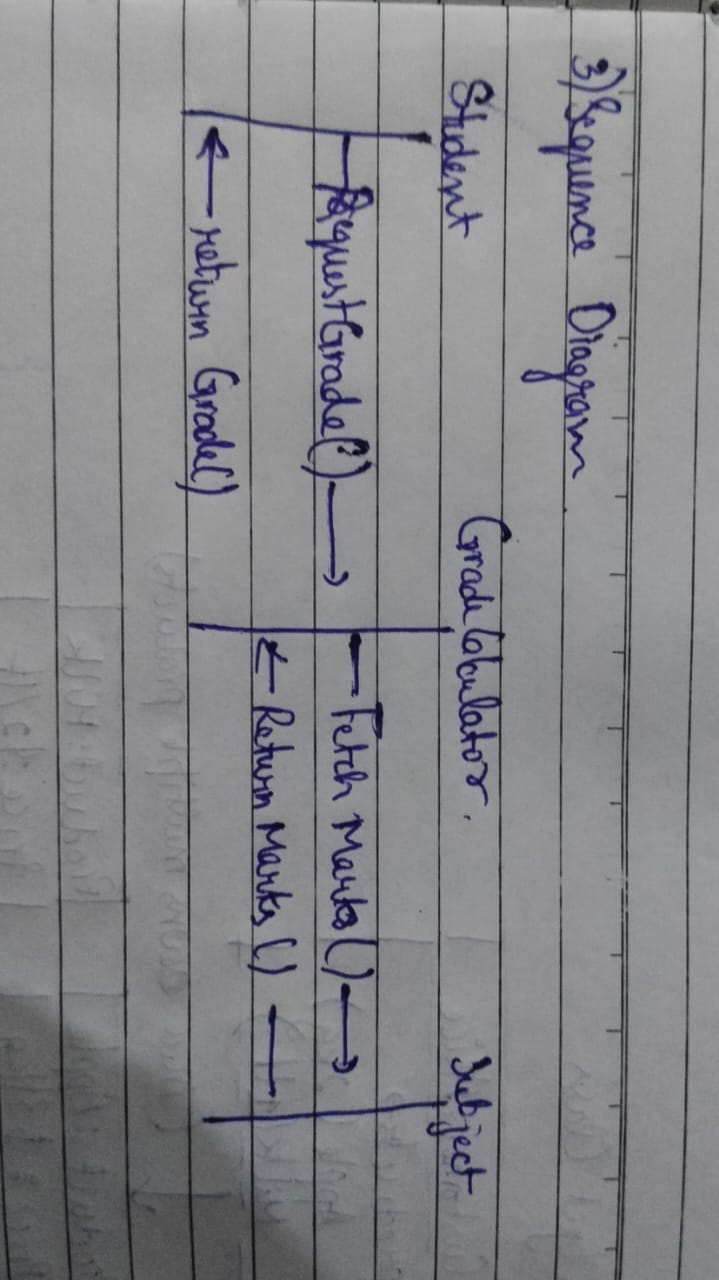 3) Sequence Diagram
Student Grade Calculator. Subject
RequestGrade() Fetch Marks()
Return Marks()
return Grade()